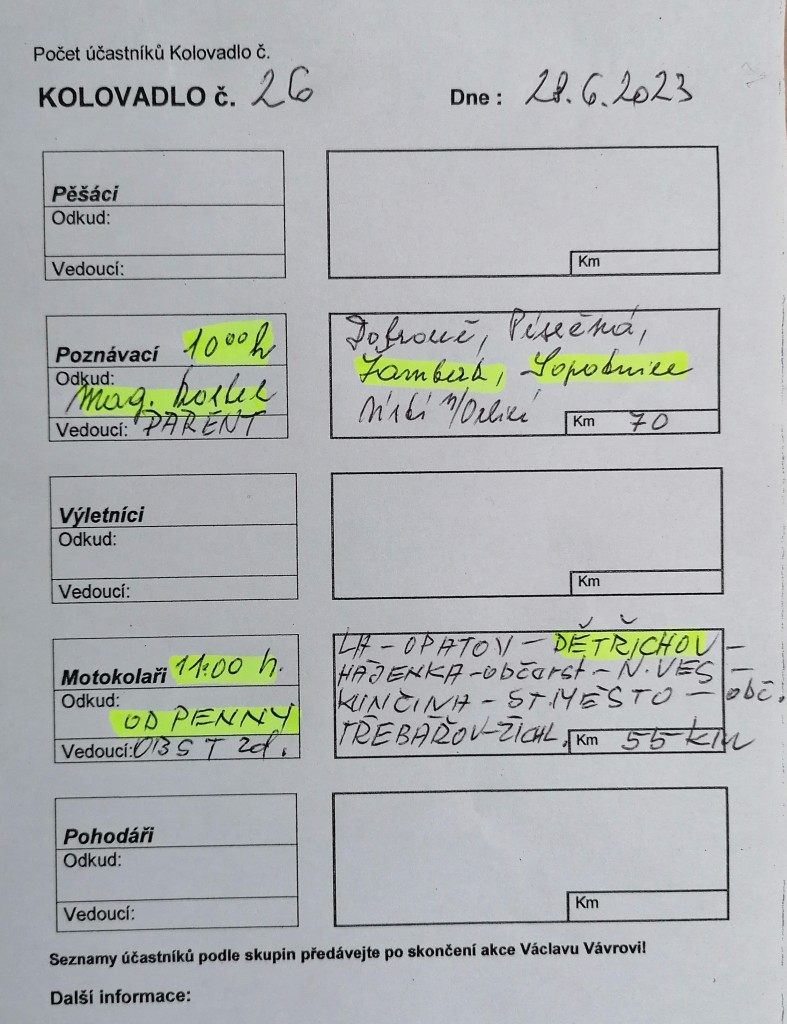 Počet účastníků Kolovadlo č.
KOLOVADLO č. 26
Dne : 28.6.2023
Pěšáci
Odkud:
Vedoucí:
Km
Poznávací 10⁰⁰ h
Odkud:
Mag. kostel
Vedoucí: PARENT
Písečná,
Žamberk,
Km 70
Výletníci
Odkud:
Vedoucí:
Km
Motokolaři 11:00 h.
Odkud:
OD PENNY
Vedoucí: OBST zd.
LA - OPATOV - DĚTŘICHOV -
HÁJENKA - občarst - N.VES -
KUNČINA - ST.MĚSTO - obč.
TŘEBAŘOV - ŽICHL.
Km 55 km
Pohodáři
Odkud:
Vedoucí:
Km
Seznamy účastníků podle skupin předávejte po skončení akce Václavu Vávrovi!
Další informace: